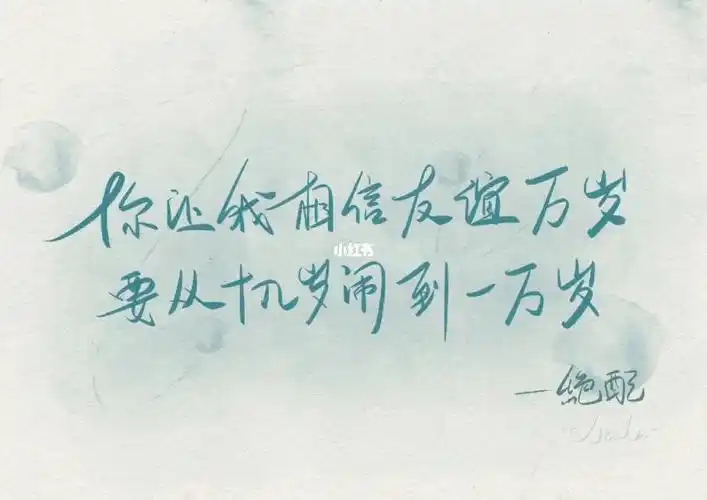 你让我相信友谊万岁
小红书
要从十几岁闹到一万岁
—絕配